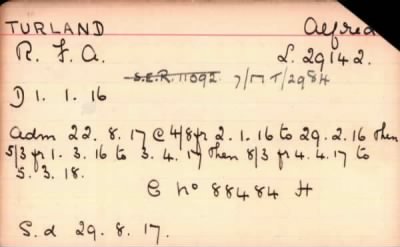 TURLAND Alfred
R. F. A. L. 29142.
S.E.R. 11092. 7/17 T/2984
D 1. 1. 16
Adm 22. 8. 17 @ 4/8 fr 2. 1. 16 to 29. 2. 16 then
5/3 fr 1. 3. 16 to 3. 4. 17 then 8/3 fr 4. 4. 17 to
5. 3. 18.
C No 88484 H
S. d 29. 8. 17.